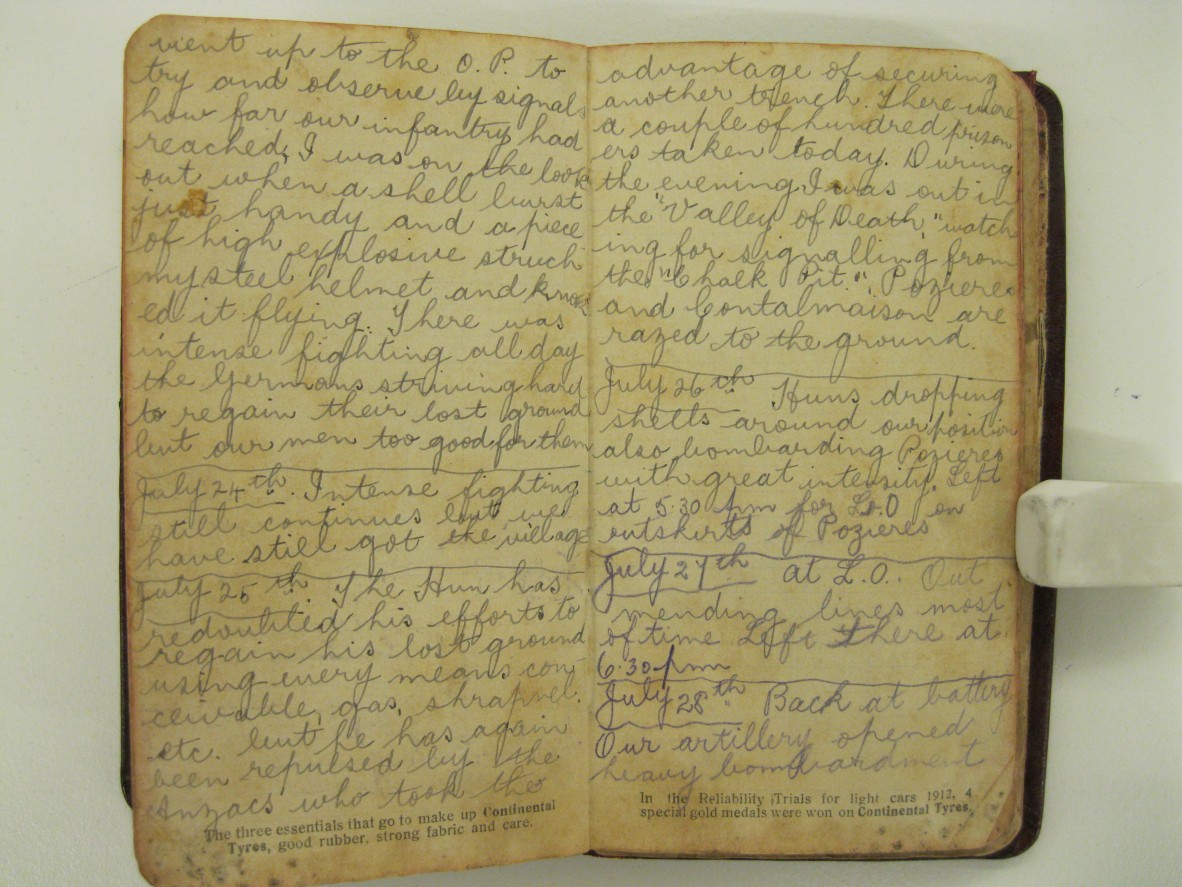 went up to the O.P. to
try and observe by signals
how far our infantry had
reached, I was on the look
out when a shell burst
just handy and a piece
of high explosive struck
my steel helmet and knock
ed it flying. There was
intense fighting all day
the Germans striving hard
to regain their lost ground
but our men too good for them
July 24th. Intense fighting
still continues but we
have still got the village
July 25th The Hun has
redoubled his efforts to
regain his lost ground
using every means con-
ceivable, gas, shrapnel.
etc. but he has again
been repulsed by the
Anzacs who took the
The three essentials that go to make up Continental
Tyres, good rubber, strong fabric and care.
advantage of securing
another trench. There were
a couple of hundred prison
ers taken today. During
the evening I was out in
the "Valley of Death," watch
ing for signalling from
the "Chalk Pit." Pozieres
and Contalmaison are
razed to the ground.
July 26th Huns dropping
shells around our position
also bombarding Pozieres
with great intensity. Left
at 5.30 for L.O on
outskirts of Pozieres
July 27th at L.O. Out
mending lines most
of time Left there at
6.30 pm
July 28th Back at battery
Our artillery opened
heavy bombardment
In the Reliability Trials for light cars 1912, 4
special gold medals were won on Continental Tyres.